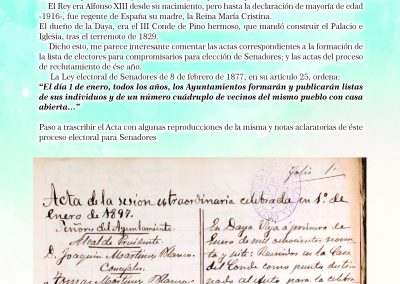 El Rey era Alfonso XIII desde su nacimiento, pero hasta la declaración de mayoría de edad
-1916-, fue regente de España su madre, la Reina María Cristina.
El dueño de la Daya, era el III Conde de Pino hermoso, que mandó construir el Palacio e
Iglesia, tras el terremoto de 1829.
Dicho esto, me parece interesante comentar las actas correspondientes a la formación de
la lista de electores para compromisarios para elección de Senadores; y las actas del proceso
de rechutamiento de ése año.
La Ley electoral de Senadores de 8 de febrero de 1877, en su artículo 25, ordena:
"El día 1 de enero, todos los años, los Ayuntamientos formarán y publicarán listas
de sus individuos y de un número cuádruplo de vecinos del mismo pueblo con casa
abierta…"
Paso a trascribir el Acta con algunas reproducciones de la misma y notas aclaratorias de éste
proceso electoral para Senadores
Folio 1.
Acta de la sesion extraordinaria celebrada en 1º de
Enero de 1897.
Señores del Ayuntamiento.
Alcalde Presidente
D. Joaquin Martinez Blanco.
Concejales
Tomas Martinez Blanco
En Daya Vieja a primero de
Enero de mil ochocientos noven
ta y siete: Reunidos en la Casa
del Conde como punto destin
nado al acto para la celebra